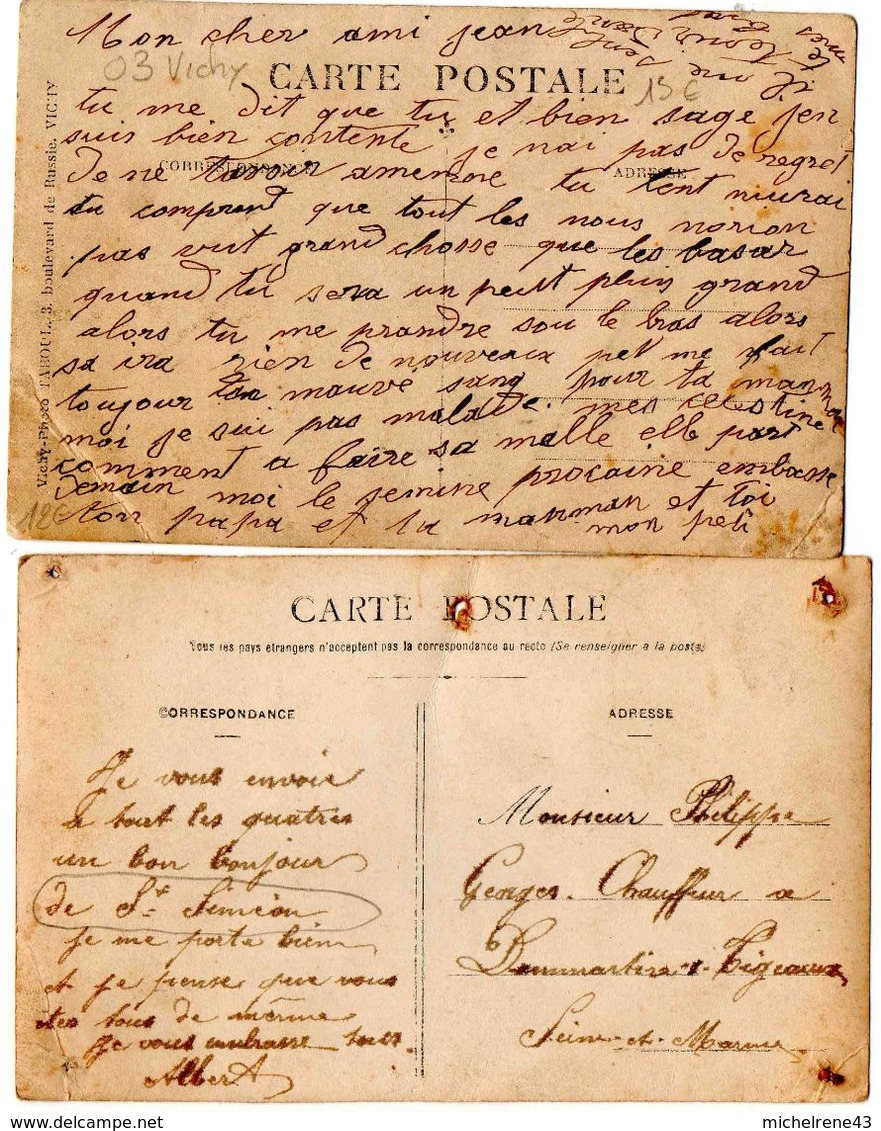 Mon cher ami jean
03 Vichy
CARTE POSTALE
15€
tu me dit que tu et bien sage jen
suis bien contente je nai pas de regret
CORRESPONDANCE
ADRESSE
de ne tavoir amemore tu tent niurai
tu comprent que tout les nous norion
pas vut grand chosse que les basar
quand tu sera un peut pluin grand
alors tu me prandre sou le bras alors
sa ira rien de nouveaux pet me fait
toujour ton mauve sang pour ta manman
moi je sui pas malade. mes celestine
comment a faire sa malle elle part
demain moi le semine procaine embasse
ton papa et ta manman et toi
mon peti
Vichy-Photo TABOUL, 3, boulevard de Russie, VICHY
12€
CARTE POSTALE
Tous les pays etrangers n'acceptent pas la correspondance au recto (Se renseigner a la poste)
CORRESPONDANCE
Je vous envoie
a tout les quatres
un bon bonjour
de St Siméon
je me porte bien
et je pense que vous
etes tous de même
Je vous embrasse tous.
Albert
ADRESSE
Monsieur Philippe
Georges. Chauffeur a
Dammartin-s-Tigeaux
Seine-et-Marne
michelrene43
delcampe.net